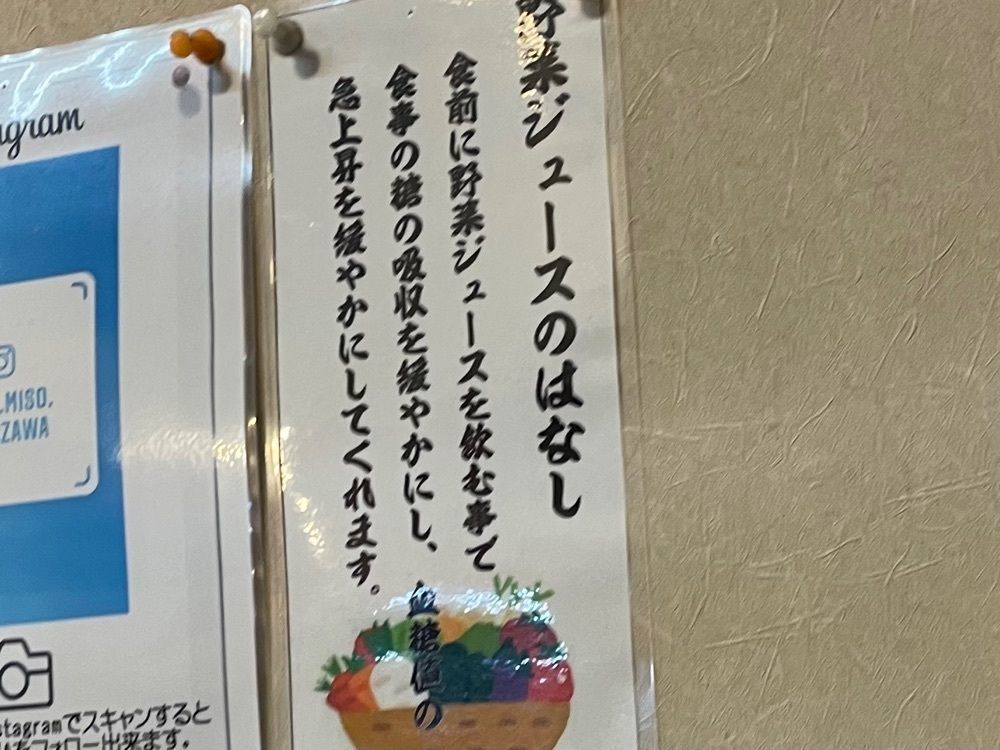 野菜ジュースのはなし
食前に野菜ジュースを飲む事で
食事の糖の吸収を緩やかにし、血糖値の
急上昇を緩やかにしてくれます。
agram
.MISO.
ZAWA
stagramでスキャンすると
をフォロー出来ます。